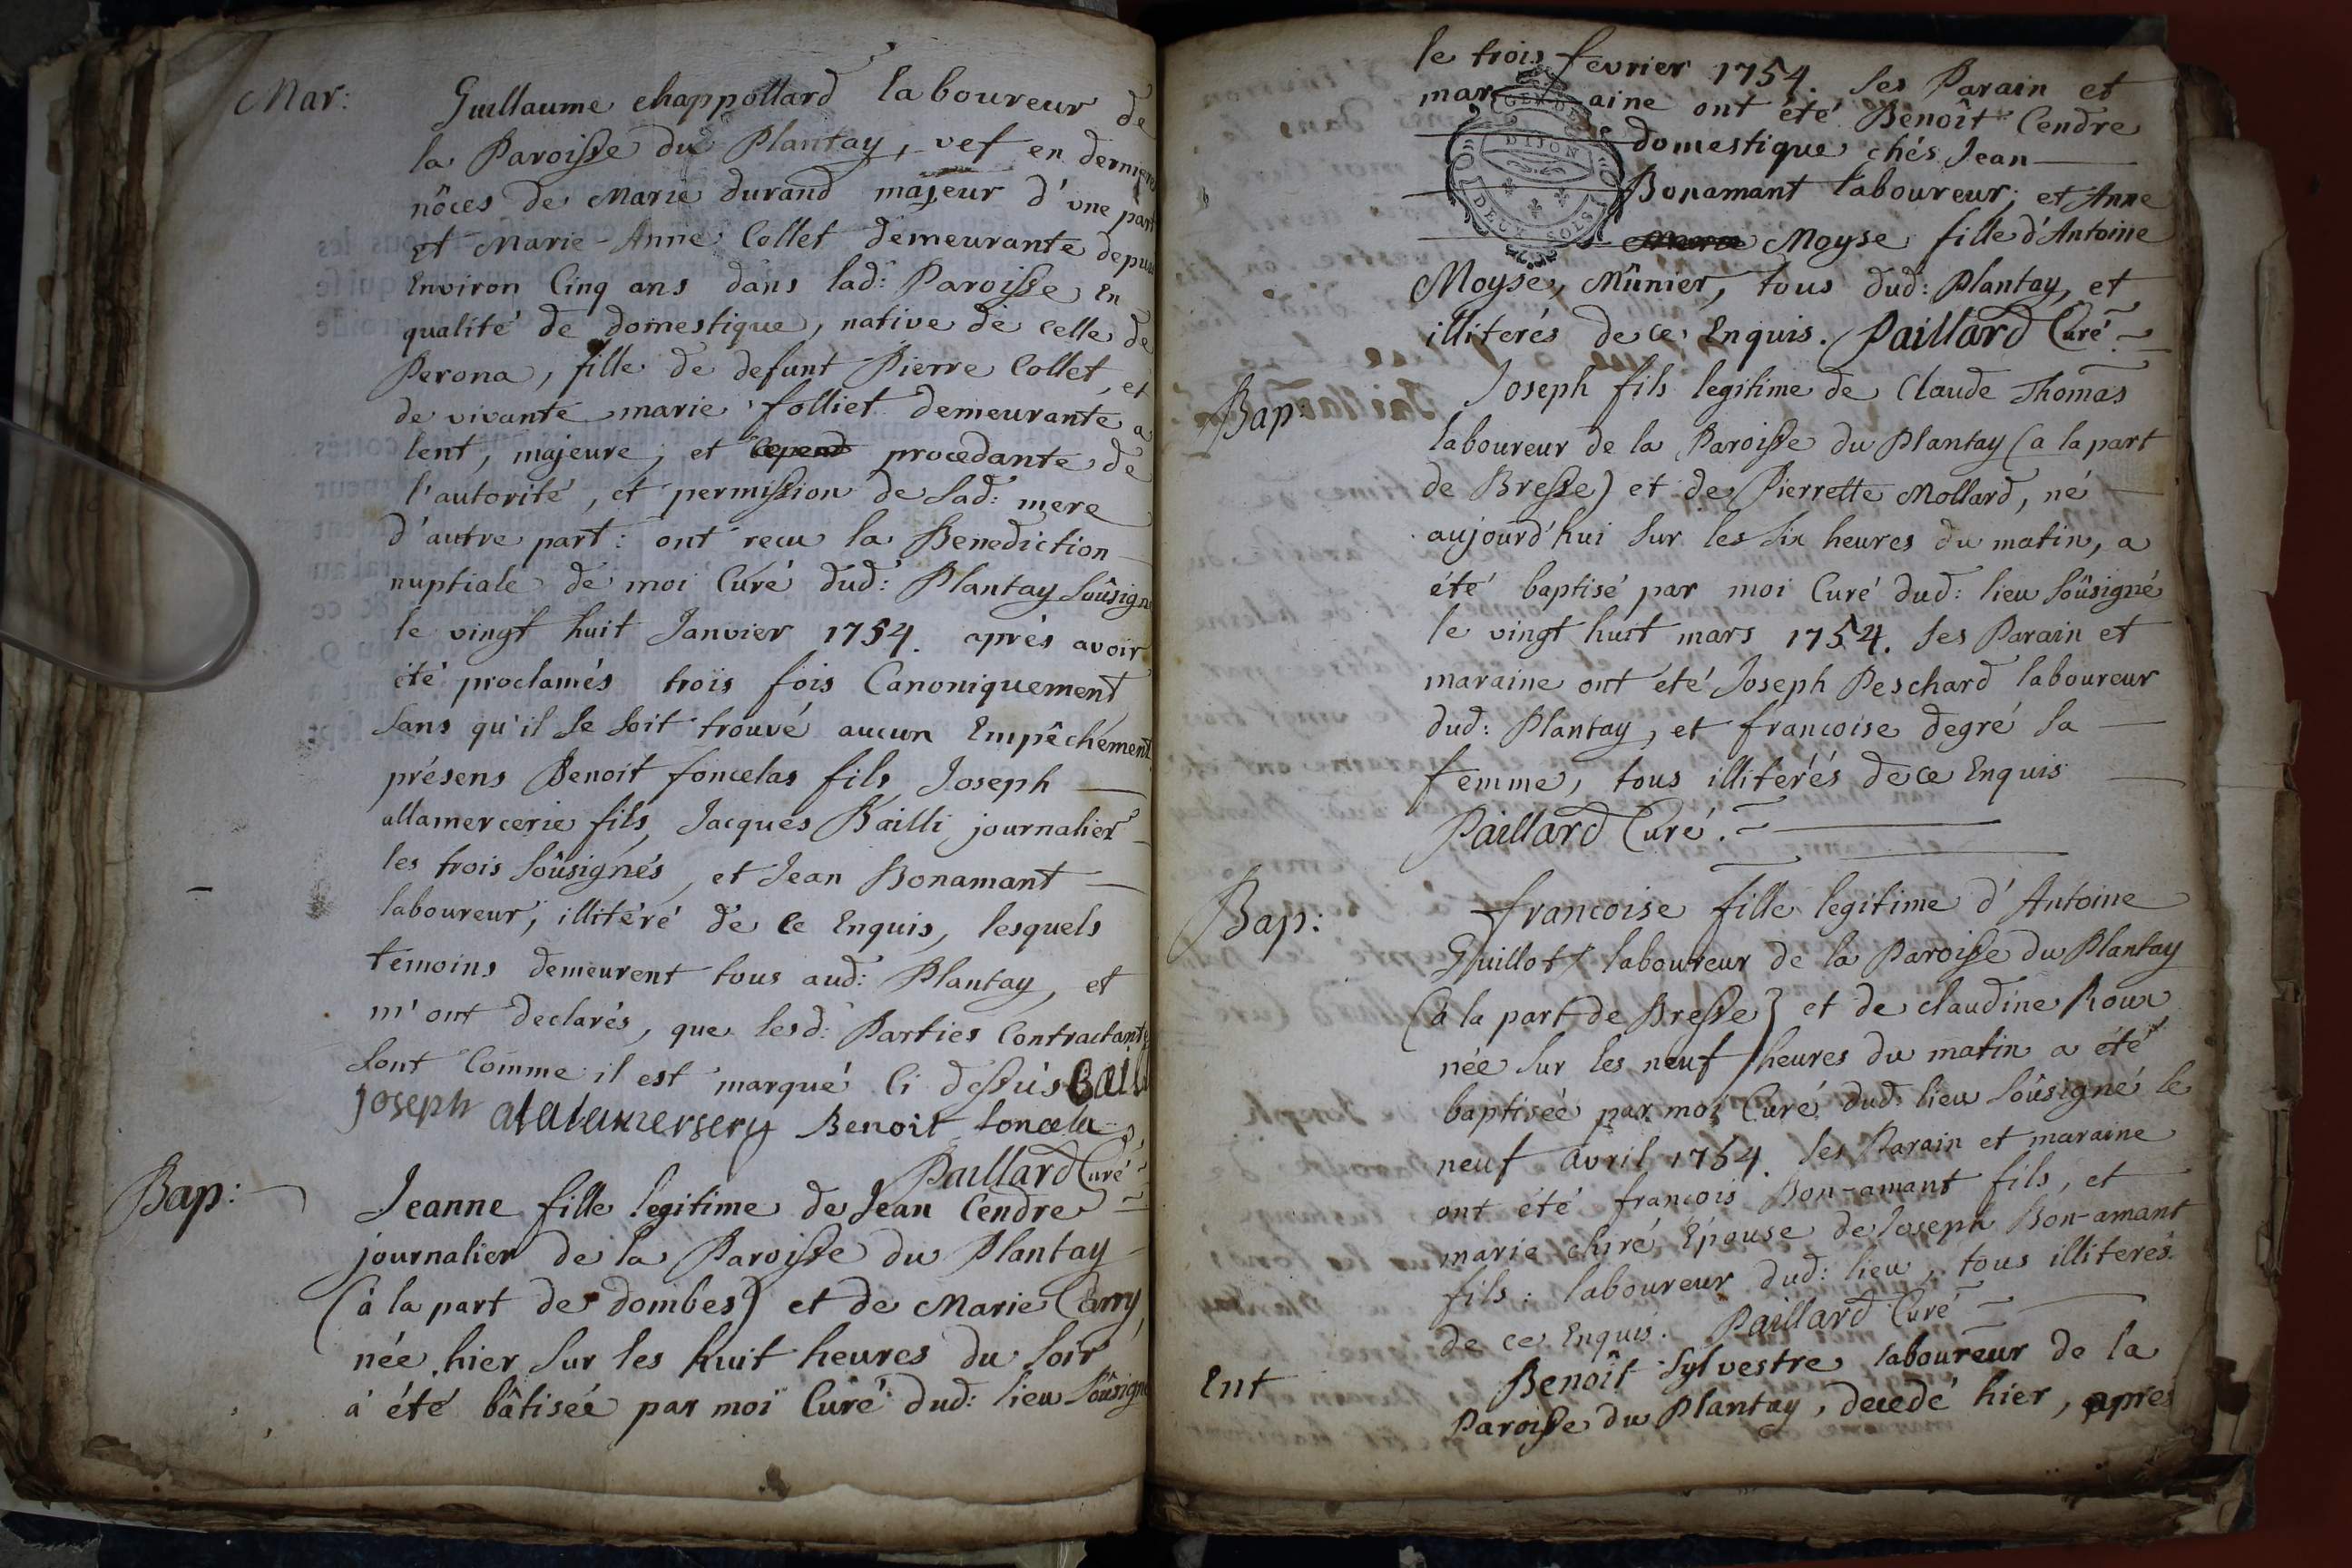 Mar:
Guillaume chappollard laboureur de
la Paroisse du Plantay, vef en derniere
nôces de Marie durand majeur d'une part
et Marie-Anne Collet demeurante depuis
Environ Cinq ans dans lad: Paroisse En
qualité de domestique, native de celle de
Perona, fille de defunt Pierre Collet, et
de vivante marie folliet demeurante a
lent, majeure; et procedante de
l'autorité, et permission de Sad: mere
d'autre part: ont reçu la Benediction
nuptiale de moi Curé dud: Plantay Soûsigné
le vingt huit Janvier 1754. aprés avoir
été proclamés trois fois Canoniquement
Sans qu'il Se Soit trouvé aucun Empêchément
présens Benoit foncelas fils, Joseph
allamercerie fils, Jacques Bailli journalier
les trois Soûsignés, et Jean Bonamant
laboureur, illitéré de Ce Enquis, lesquels
témoins demeurent tous aud: Plantay, et
m'ont declarés, que lesd: Parties Contractante
Sont Comme il est marqué Ci dessus Baill
joseph Benoit foncela
Paillard Curé
Bap:
Jeanne fille legitime de Jean Cendre
journalier de la Paroisse du Plantay
(à la part de dombes) et de Marie Carry,
née hier Sur les huit heures du Soir
a été bâtisée par moi Curé dud: lieu Soûsigné
le trois février 1754. Ses Parain et
maraine ont été Benoît Cendre
domestique chés Jean
Bonamant laboureur; et Anne
Moyse fille d'Antoine
Moyse, Mûnier, tous dud: Plantay, et
illiterés de ce Enquis. Paillard Curé
GEN DE
DIJON
DEUX SOLS
Bap:
Joseph fils legitime de Claude Thomas
laboureur de la Paroisse du Plantay (a la part
de Bresse) et de Pierrette Mollard, né
aujourd'hui Sur les Six heures du matin, a
été baptisé par moi Curé dud: lieu Soûsigné
le vingt huit mars 1754. Ses Parain et
maraine ont été Joseph Peschard laboureur
dud: Plantay, et francoise degré Sa
femme, tous illitérés de ce Enquis
Paillard Curé.
Bap:
francoise fille legitime d'Antoine
Guillot laboureur de la Paroisse du Plantay
(à la part de Bresse) et de claudine Roux
née Sur les neuf heures du matin a été
baptisée par moi Curé dud: lieu Soûsigné le
neuf avril 1754. Ses Parain et maraine
ont été francois Bon-amant fils, et
marie chiré Épouse de Joseph Bon-amant
fils: laboureur dud: lieu, tous illiterés
de ce Enquis. Paillard Curé
Ent
Benoît Sylvestre laboureur de la
Paroisse du Plantay, decedé hier, aprés